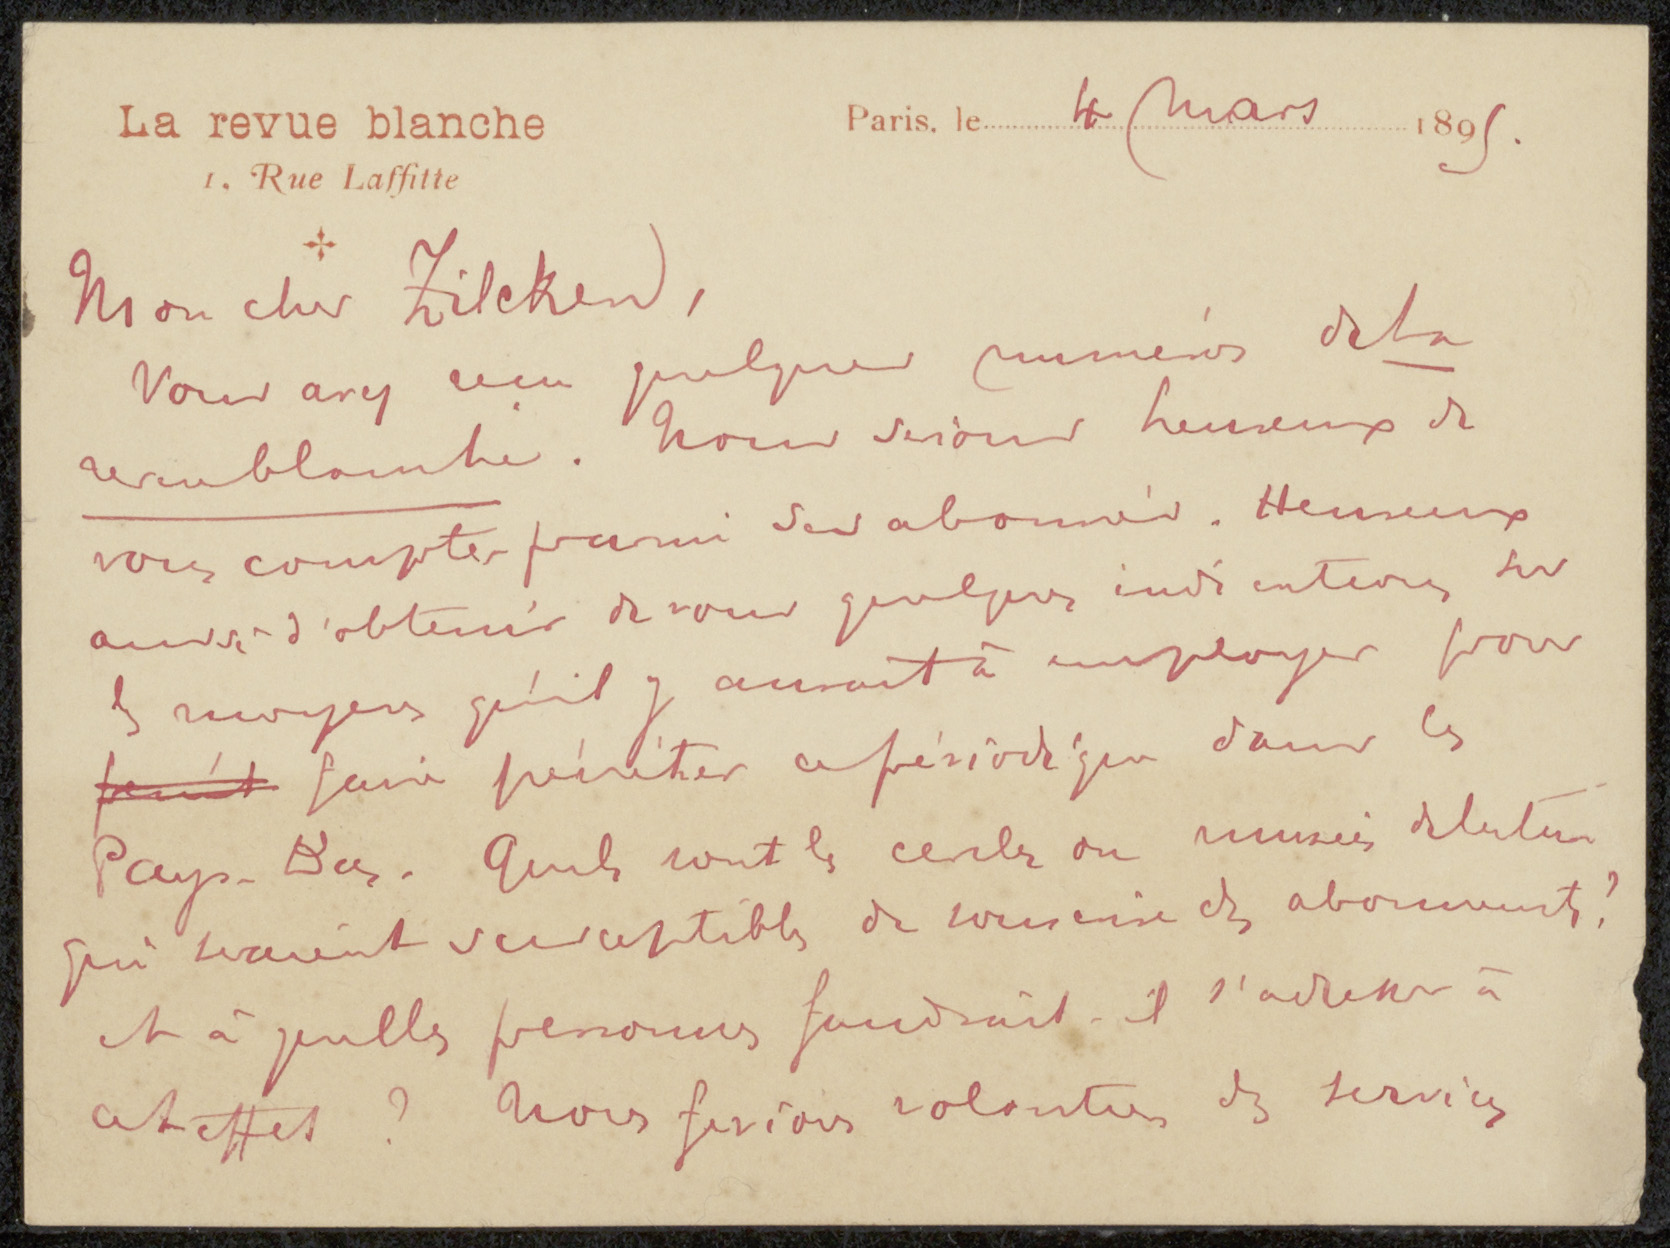 La revue blanche
1. Rue Laffitte
Paris, le 4 Mars 1895.
Mon cher Zilcken,
Vous avez reçu quelques numéros de La
revue blanche. Nous serions heureux de
vous compter parmi ses abonnés. Heureux
aussi d'obtenir de vous quelques indications sur
les moyens qu'il y aurait à employer pour
faire pénétrer ce périodique dans les
Pays-Bas. Quels sont les cercles ou musées de lecture
qui seraient susceptibles de souscrire des abonnements?
et à quelles personnes faudrait-il s'adresser à
cet effet? Nous ferions volontiers des services